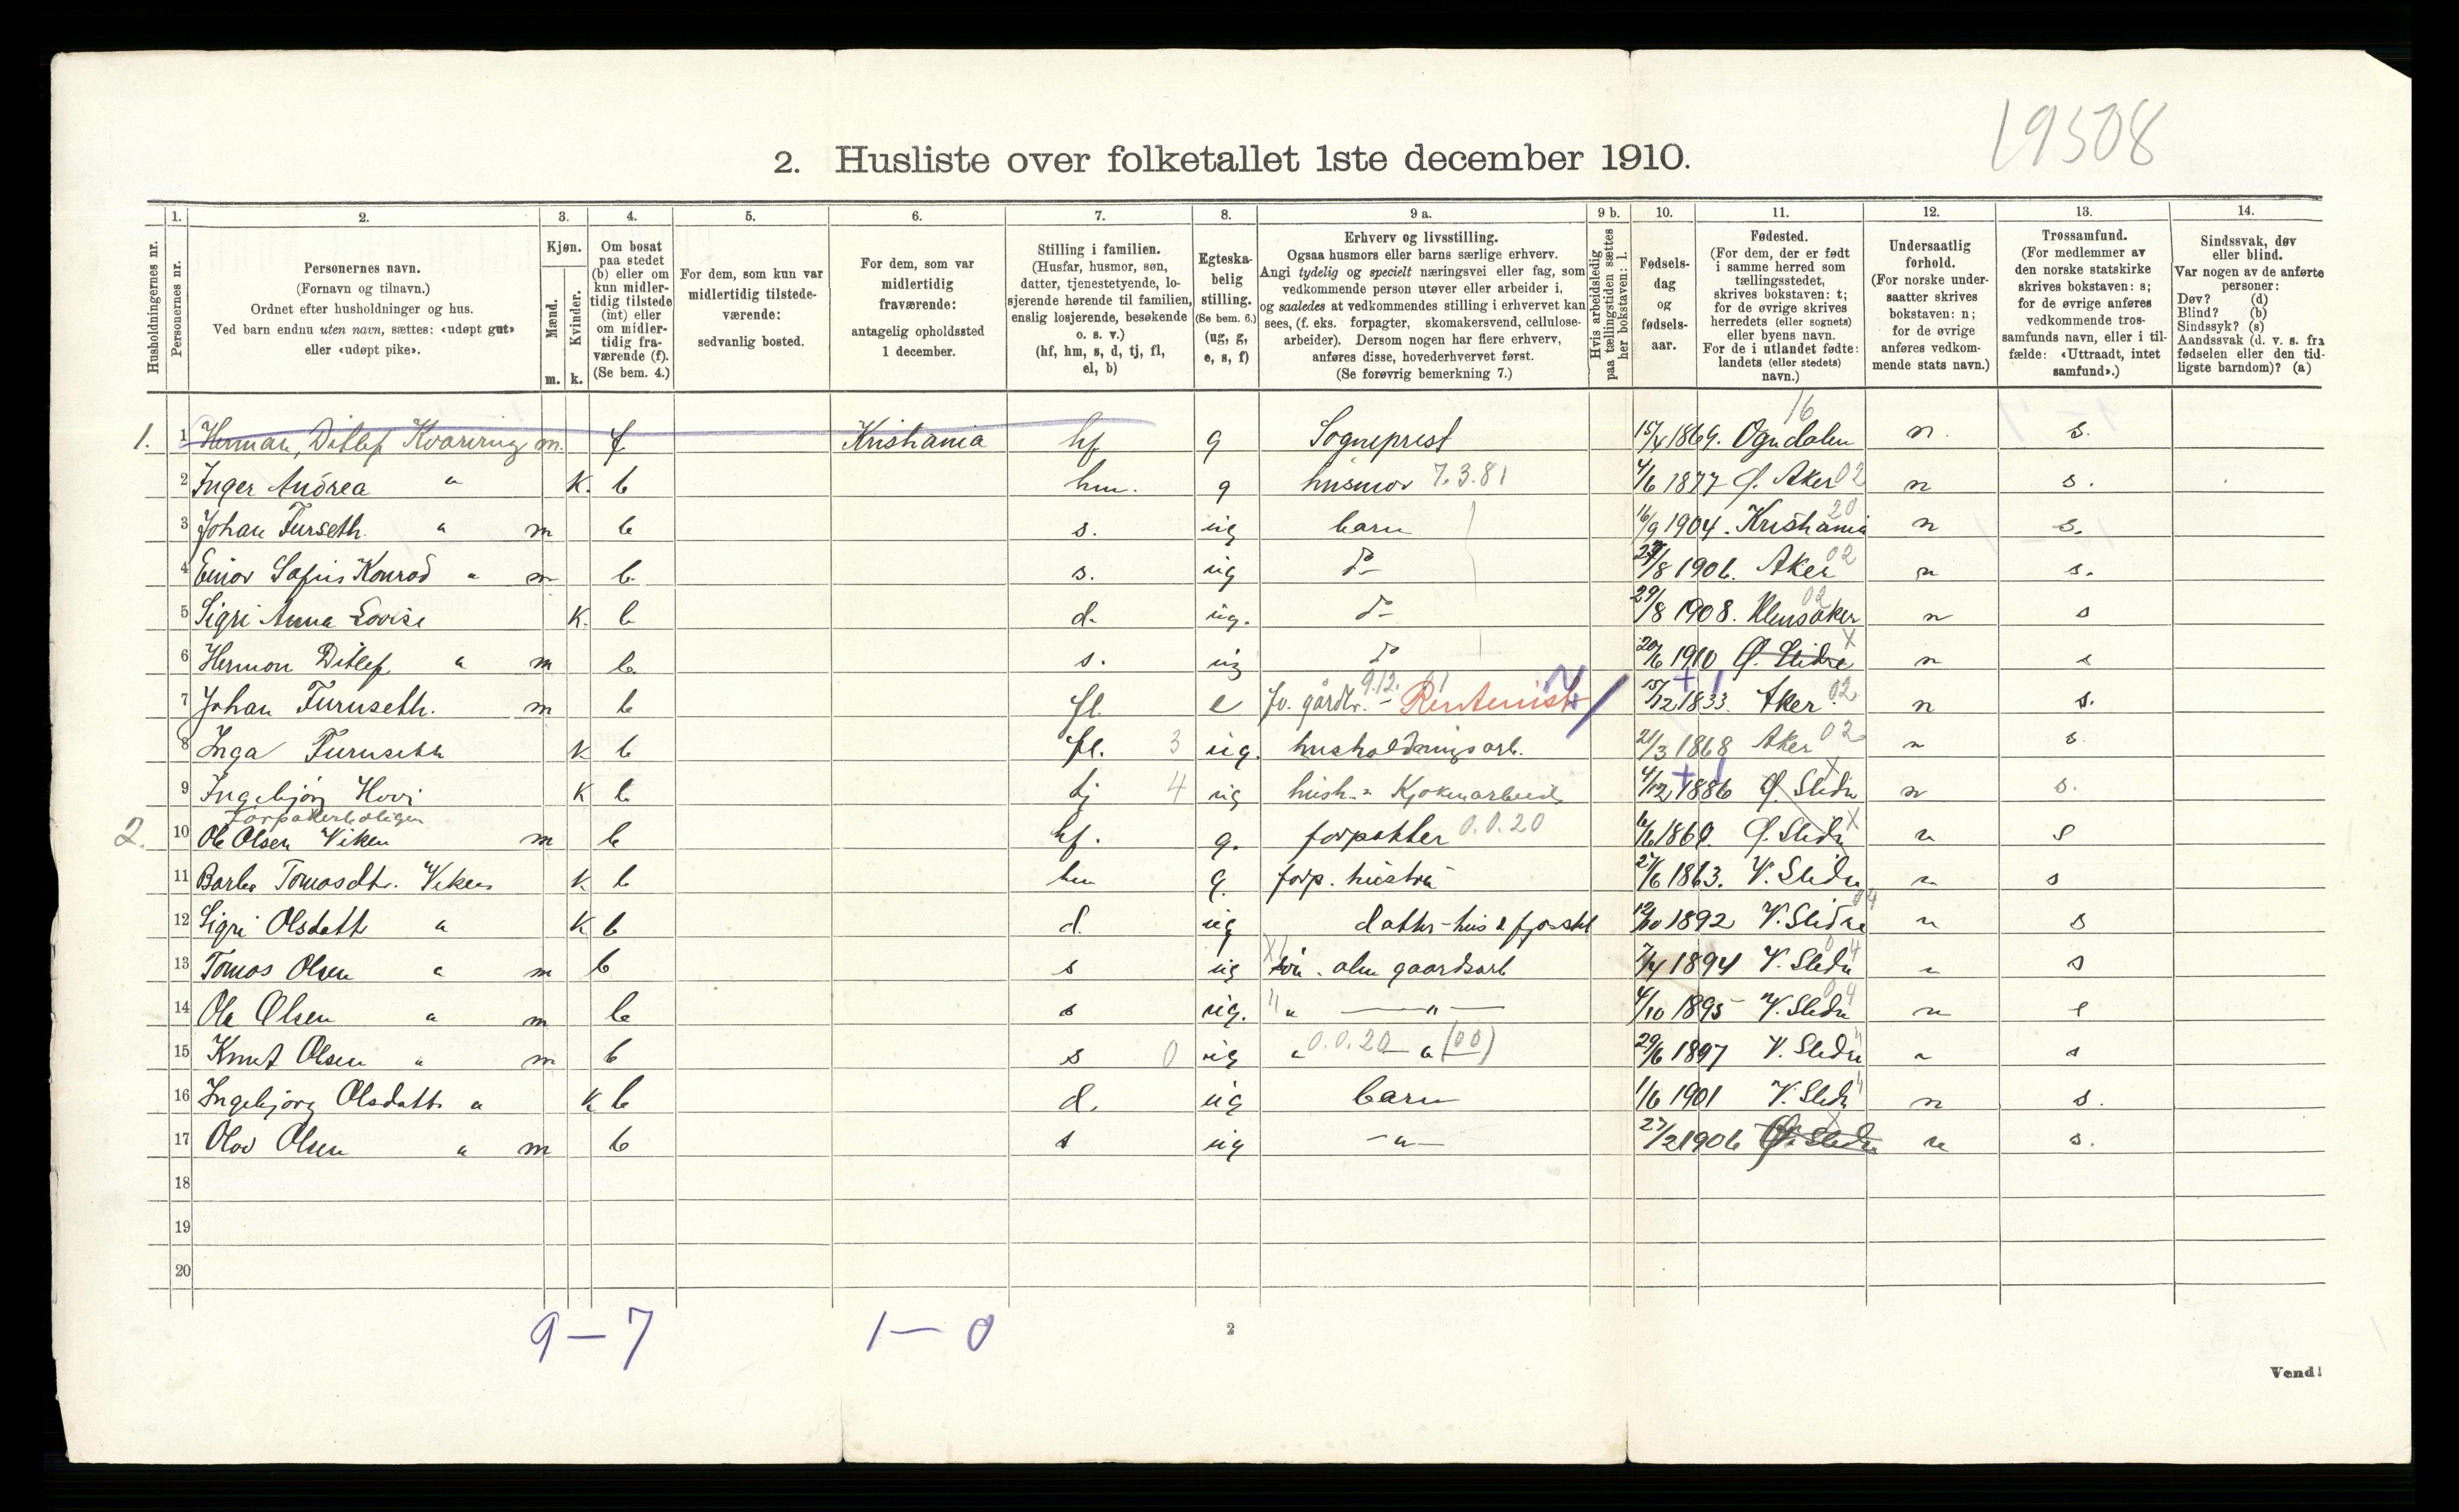 19508
2. Husliste over folketallet 1ste december 1910.
Husholdningernes nr.
1. 2. 3. 4. 5. 6. 7. 8. 9 a. 9 b. 10. 11. 12. 13. 14.
Personernes nr.
Personernes navn.
(Fornavn og tilnavn.)
Ordnet efter husholdninger og hus.
Ved barn endnu uten navn, sættes: «udøpt gut»
eller «udøpt pike».
Kjøn.
Mænd.
Kvinder.
m. k.
Om bosat
paa stedet
(b) eller om
kun midler-
tidig tilstede
(mt) eller
om midler-
tidig fra-
værende (f).
(Se bem. 4.)
For dem, som kun var
midlertidig tilstede-
værende:
sedvanlig bosted.
For dem, som var
midlertidig
fraværende:
antagelig opholdssted
1 december.
Stilling i familien.
(Husfar, husmor, søn,
datter, tjenestetyende, lo-
sjerende hørende til familien,
enslig losjerende, besøkende
o. s. v.)
(hf, hm, s, d, tj, fl,
el, b)
Egteska-
belig
stilling.
(Se bem. 6.)
(ug, g,
e, s, f)
Erhverv og livsstilling.
Ogsaa husmors eller barns særlige erhverv.
Angi tydelig og specielt næringsvei eller fag, som
vedkommende person utøver eller arbeider i,
og saaledes at vedkommendes stilling i erhvervet kan
sees, (f. eks. forpagter, skomakersvend, cellulose-
arbeider). Dersom nogen har flere erhverv,
anføres disse, hovederhvervet først.
(Se forøvrig bemerkning 7.)
Hvis arbeidsledig
paa tællingstiden sættes
her bokstaven: l.
Fødsels-
dag
og
fødsels-
aar.
Fødested.
(For dem, der er født
i samme herred som
tællingsstedet,
skrives bokstaven: t;
for de øvrige skrives
herredets (eller sognets)
eller byens navn.
For de i utlandet fødte:
landets (eller stedets)
navn.)
Undersaatlig
forhold.
(For norske under-
saatter skrives
bokstaven: n;
for de øvrige
anføres vedkom-
mende stats navn.)
Trossamfund.
(For medlemmer av
den norske statskirke
skrives bokstaven: s;
for de øvrige anføres
vedkommende tros-
samfunds navn, eller i til-
fælde: «Uttraadt, intet
samfund».)
Sindssvak, døv
eller blind.
Var nogen av de anførte
personer:
Døv? (d)
Blind? (b)
Sindssyk? (s)
Aandssvak (d. v. s. fra
fødselen eller den tid-
ligste barndom)? (a)
16
1. 1 Herman, Ditlef Kvarving m. f Kristiania hf g Sogneprest 15/4 1869. Ogndalen n. s.
2 Inger Andrea " K. b hm. g husmor 7.3.81 4/6 1877 Ø. Aker 02 n s.
3 Johan Furseth. " m b s. ug barn 16/9 1904. Kristiania 20 n s.
4 Einar Sofus Konrad " m b. s. ug do 27/8 1906. Aker 02 n s.
5 Sigri Anna Lovise K. b d. ug. do 29/8 1908. Ullensaker 02 n s
6 Herman Ditlef " m b. s. ug do 20/6 1910 Ø. Slidre X n s
7 Johan Furuseth. m b fl. e fv. gårdbr. - Rentenist 15/12 1833. Aker 02 n s.
8 Inga Furuseth K b fl. 3 ug. husholdningsarb. 21/3 1868 Aker 02 n s
9 Ingebjørg Hovi K b tj 4 ug hush. " Kjøkenarbeid 4/12 1886 Ø. Slidre X n s.
Forpakterboligen
2. 10 Ole Olsen Viken m b hf. g. forpakter 0.0.20 1860. Ø. Slidre X n s
11 Barbo Tomasdtr. Viken K b hm g. forp. hustru 27/6 1863. V. Slidre n s
12 Sigri Olsdatt " K b d. ug datter - hus & fjosstel 12/10 1892 V. Slidre 04 n s
13 Tomas Olsen " m b s ug søn. alm gaardsarb 7/4 1894 V. Slidre 04 n s
14 Ole Olsen " m b s ug. " — " — 4/10 1895 V. Slidre 04 n s
15 Knut Olsen " m b s 0 ug " 0.0.20 — " (00) 29/6 1897 V. Slidre " n s
16 Ingebjørg Olsdatt. " K b d. ug barn 1/6 1901 V. Slidre " n s.
17 Olav Olsen " m b s ug — " — 27/2 1906 Ø. Slidre X n s.
18
19
20
9 — 7 1 — 0
2
Vend!